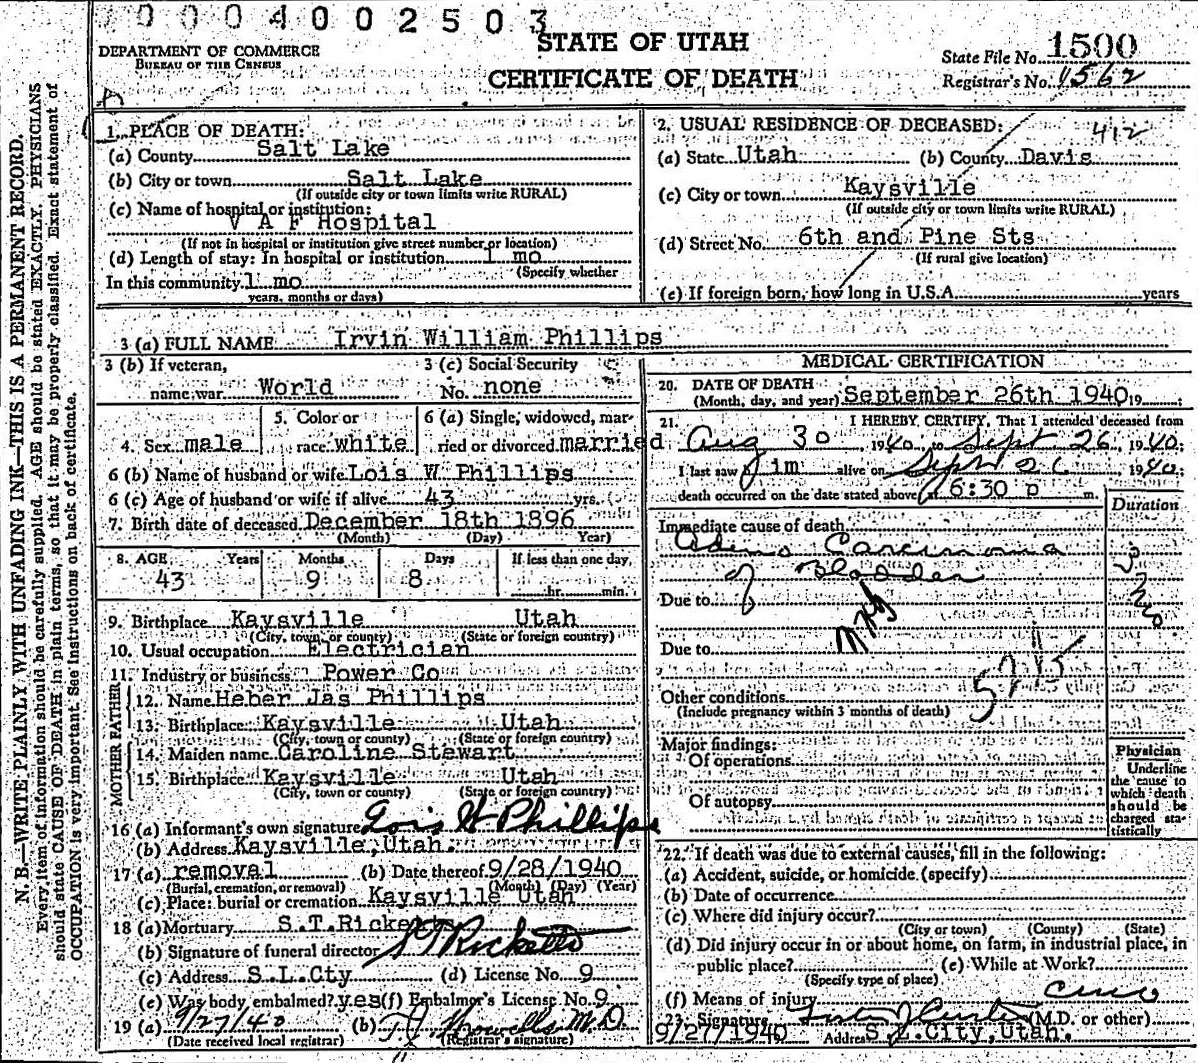 0004002503
DEPARTMENT OF COMMERCE
BUREAU OF THE CENSUS
STATE OF UTAH
CERTIFICATE OF DEATH
State File No. 1500
Registrar's No. 1562
N. B.—WRITE PLAINLY WITH UNFADING INK—THIS IS A PERMANENT RECORD.
Every item of information should be carefully supplied. AGE should be stated EXACTLY. PHYSICIANS
should state CAUSE OF DEATH in plain terms, so that it may be properly classified. Exact statement of
OCCUPATION is very important. See instructions on back of certificate.
1. PLACE OF DEATH:
(a) County Salt Lake
(b) City or town Salt Lake
(If outside city or town limits write RURAL)
(c) Name of hospital or institution:
V A F Hospital
(If not in hospital or institution give street number or location)
(d) Length of stay: In hospital or institution 1 mo
(Specify whether
In this community 1 mo
years, months or days)
2. USUAL RESIDENCE OF DECEASED: 412
(a) State Utah (b) County Davis
(c) City or town Kaysville
(If outside city or town limits write RURAL)
(d) Street No. 6th and Pine Sts
(If rural give location)
(e) If foreign born, how long in U.S.A. years
3 (a) FULL NAME Irvin William Phillips
3 (b) If veteran,
name war World
3 (c) Social Security
No. none
4. Sex male
5. Color or
race white
6 (a) Single, widowed, mar-
ried or divorced married
6 (b) Name of husband or wife Lois W Phillips
6 (c) Age of husband or wife if alive 43 yrs.
7. Birth date of deceased December 18th 1896
(Month) (Day) Year)
8. AGE Years Months Days If less than one day,
43 9 8 hr. min.
9. Birthplace Kaysville Utah
(City, town, or county) (State or foreign country)
10. Usual occupation Electrician
11. Industry or business Power Co
FATHER
12. Name Heber Jas Phillips
13. Birthplace Kaysville Utah
(City, town or county) (State or foreign country)
MOTHER
14. Maiden name Caroline Stewart
15. Birthplace Kaysville Utah
(City, town or county) (State or foreign country)
16 (a) Informant's own signature Lois W Phillips
(b) Address Kaysville, Utah.
17 (a) removal (b) Date thereof 9/28/1940
(Burial, cremation, or removal) (Month) (Day) (Year)
(c) Place: burial or cremation Kaysville Utah
18 (a) Mortuary S.T.Ricketts
(b) Signature of funeral director S T Ricketts
(c) Address S.L.Cty (d) License No. 9
(e) Was body embalmed? yes (f) Embalmer's License No. 9
19 (a) 9/27/40 (b) T J Howells M.D.
(Date received local registrar) (Registrar's signature)
MEDICAL CERTIFICATION
20. DATE OF DEATH
(Month, day, and year) September 26th 1940 19 ;
21. I HEREBY CERTIFY, That I attended deceased from
Aug 30 1940 to Sept 26 1940;
I last saw him alive on Sept 26 1940;
death occurred on the date stated above at 6:30 p m.
Duration
Immediate cause of death
Adeno Carcinoma
of Bladder
Due to
Due to
Other conditions
(Include pregnancy within 3 months of death)
Major findings:
Of operations
Of autopsy
Physician
Underline
the cause to
which death
should be
charged sta-
tistically
22. If death was due to external causes, fill in the following:
(a) Accident, suicide, or homicide (specify)
(b) Date of occurrence
(c) Where did injury occur?
(City or town) (County) (State)
(d) Did injury occur in or about home, on farm, in industrial place, in
public place? (e) While at Work?
(Specify type of place)
(f) Means of injury
23. Signature (M.D. or other)
9/27/1940 Address S L City, Utah.